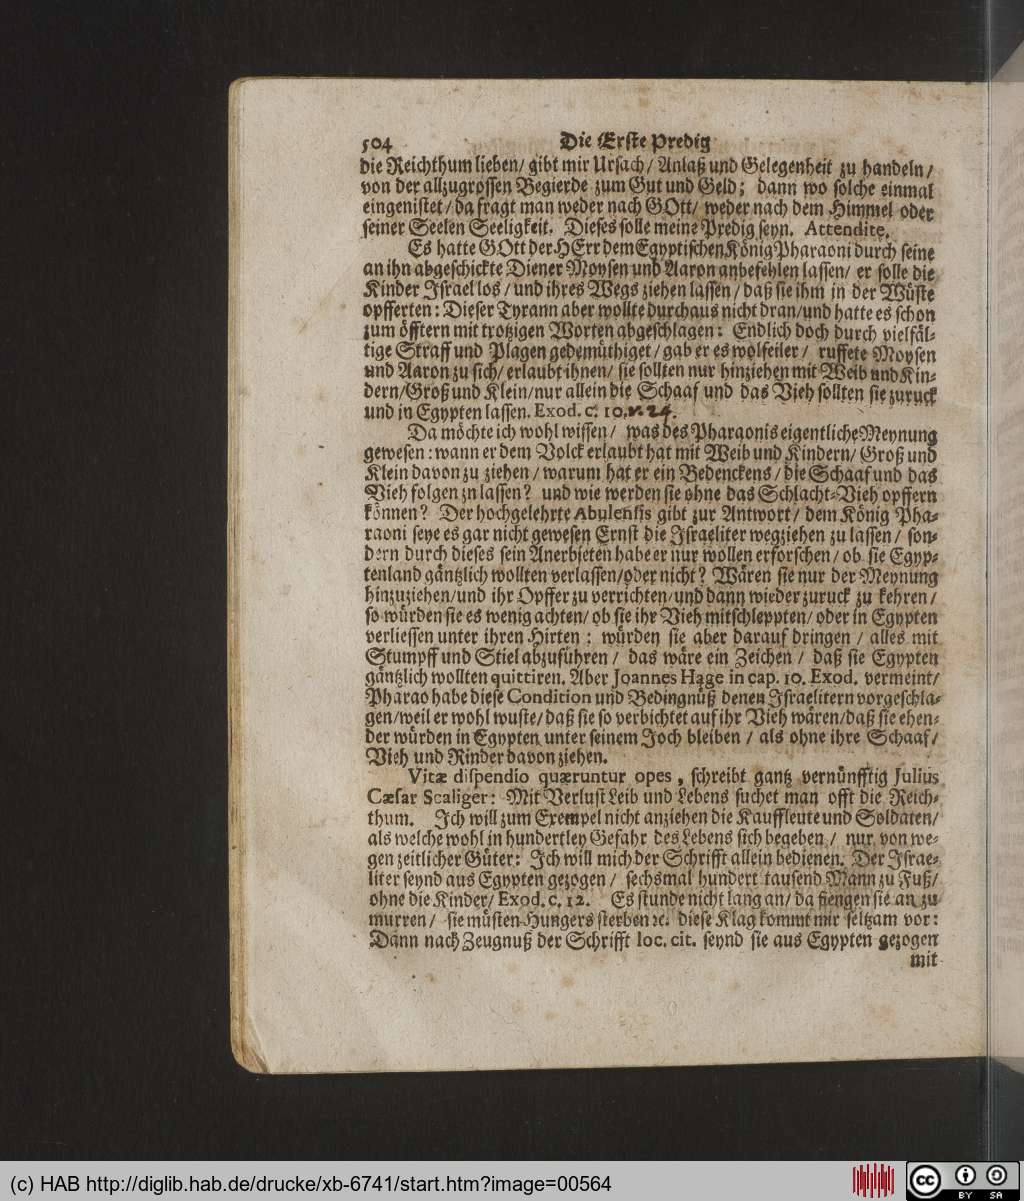 504 Die Erste Predig
die Reichthum lieben/ gibt mir Ursach/ Anlaß und Gelegenheit zu handeln/
von der allzugrossen Begierde zum Gut und Geld; dann wo solche einmal
eingenistet/ da fragt man weder nach GOtt/ weder nach dem Himmel oder
seiner Seelen Seeligkeit. Dieses solle meine Predig seyn. Attendite.
Es hatte GOtt der HErr dem Egyptischen König Pharaoni durch seine
an ihn abgeschickte Diener Moysen und Aaron anbefehlen lassen/ er solle die
Kinder Israel los/ und ihres Wegs ziehen lassen/ daß sie ihm in der Wüste
opfferten: Dieser Tyrann aber wollte durchaus nicht dran/ und hatte es schon
zum öfftern mit trotzigen Worten abgeschlagen: Endlich doch durch vielfäl-
tige Straff und Plagen gedemüthiget/ gab er es wolfeiler/ ruffete Moysen
und Aaron zu sich/ erlaubt ihnen/ sie sollten nur hinziehen mit Weib und Kin-
dern/ Groß und Klein/ nur allein die Schaaf und das Vieh sollten sie zuruck
und in Egypten lassen. Exod. c. 10. v. 24.
Da möchte ich wohl wissen/ was des Pharaonis eigentliche Meynung
gewesen: wann er dem Volck erlaubt hat mit Weib und Kindern/ Groß und
Klein davon zu ziehen/ warum hat er ein Bedenckens/ die Schaaf und das
Vieh folgen zn lassen? und wie werden sie ohne das Schlacht-Vieh opffern
können? Der hochgelehrte Abulensis gibt zur Antwort/ dem König Pha-
raoni seye es gar nicht gewesen Ernst die Israeliter wegziehen zu lassen/ son-
dern durch dieses sein Anerbieten habe er nur wollen erforschen/ ob sie Egyp-
tenland gäntzlich wollten verlassen/ oder nicht? Wären sie nur der Meynung
hinzuziehen/ und ihr Opffer zu verrichten/ und dann wieder zuruck zu kehren/
so würden sie es wenig achten/ ob sie ihr Vieh mitschleppten/ oder in Egypten
verliessen unter ihren Hirten: würden sie aber darauf dringen/ alles mit
Stumpff und Stiel abzuführen/ das wäre ein Zeichen/ daß sie Egypten
gäntzlich wollten quittiren. Aber Joannes Hage in cap. 10. Exod. vermeint/
Pharao habe diese Condition und Bedingnuß denen Israelitern vorgeschla-
gen/ weil er wohl wuste/ daß sie so verbichtet auf ihr Vieh wären/ daß sie ehen-
der würden in Egypten unter seinem Joch bleiben/ als ohne ihre Schaaf/
Vieh und Rinder davon ziehen.
Vitæ dispendio quæruntur opes, schreibt gantz vernünfftig Julius
Cæsar Scaliger: Mit Verlust Leib und Lebens suchet man offt die Reich-
thum. Ich will zum Exempel nicht anziehen die Kauffleute und Soldaten/
als welche wohl in hundertley Gefahr des Lebens sich begeben/ nur von we-
gen zeitlicher Güter: Ich will mich der Schrifft allein bedienen. Der Israe-
liter seynd aus Egypten gezogen/ sechsmal hundert tausend Mann zu Fuß/
ohne die Kinder/ Exod. c. 12. Es stunde nicht lang an/ da fiengen sie an zu
murren/ sie müsten Hungers sterben ꝛc. diese Klag kommt mir seltzam vor:
Dann nach Zeugnuß der Schrifft loc. cit. seynd sie aus Egypten gezogen
mit
(c) HAB http://diglib.hab.de/drucke/xb-6741/start.htm?image=00564
cc BY SA